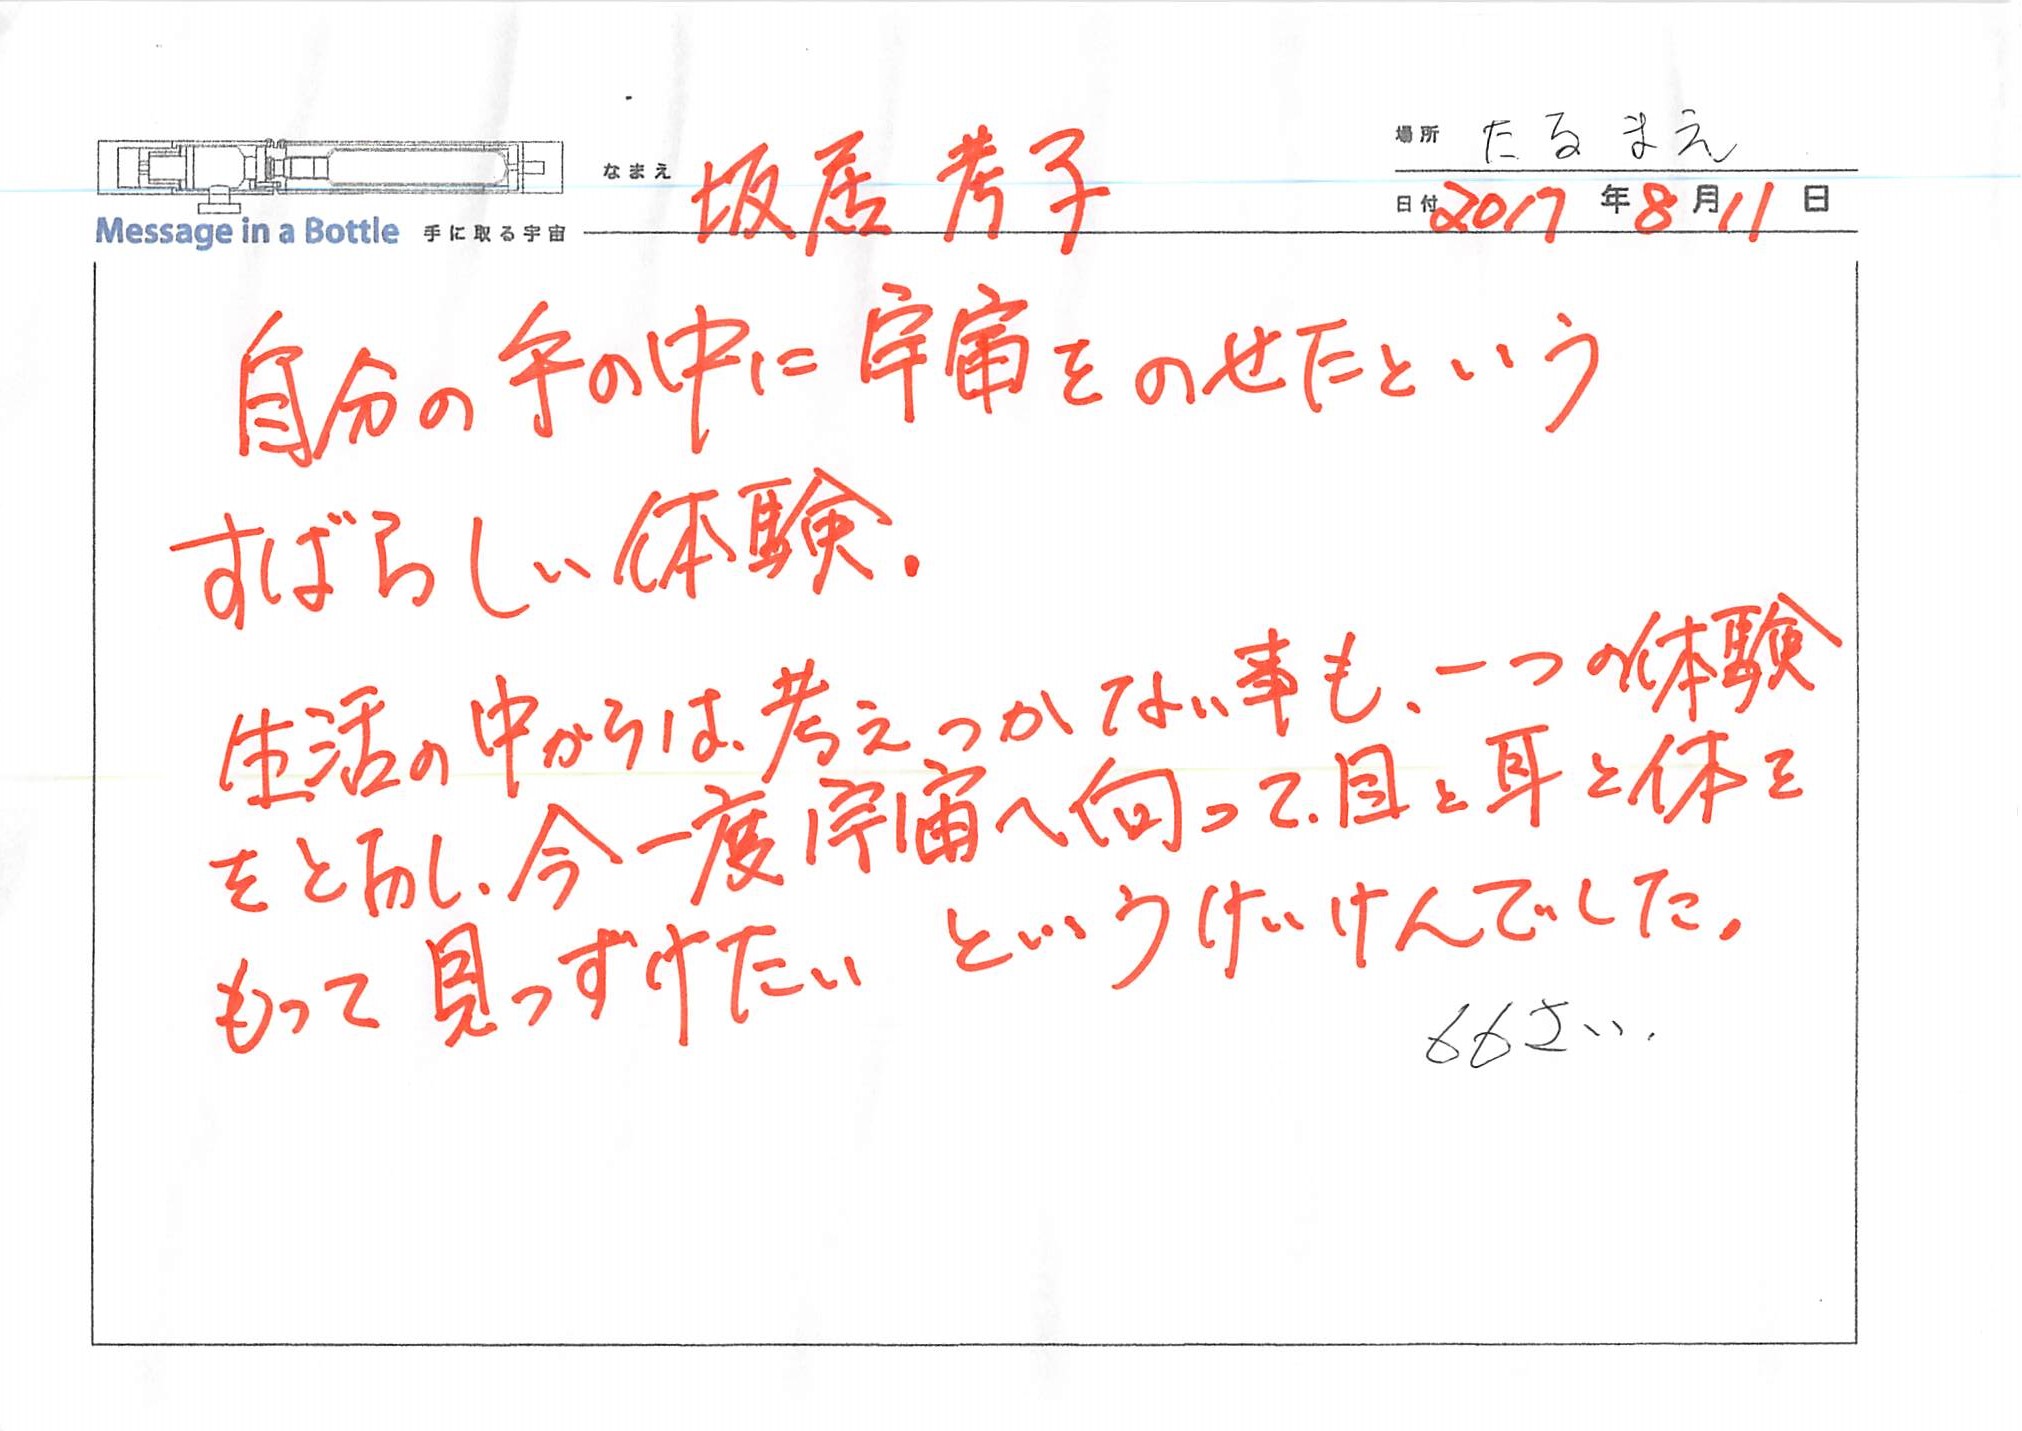 なまえ 坂居 考子
場所 たるまえ
日付 2017 年 8 月 11 日
Message in a Bottle 手に取る宇宙
自分の手の中に宇宙をのせたという
すばらしい体験.
生活の中からは、考えつかない事も、一つの体験
をとおし、今一度宇宙へ向って、目と耳と体を
もって見つずけたい というけいけんでした。
66さい.